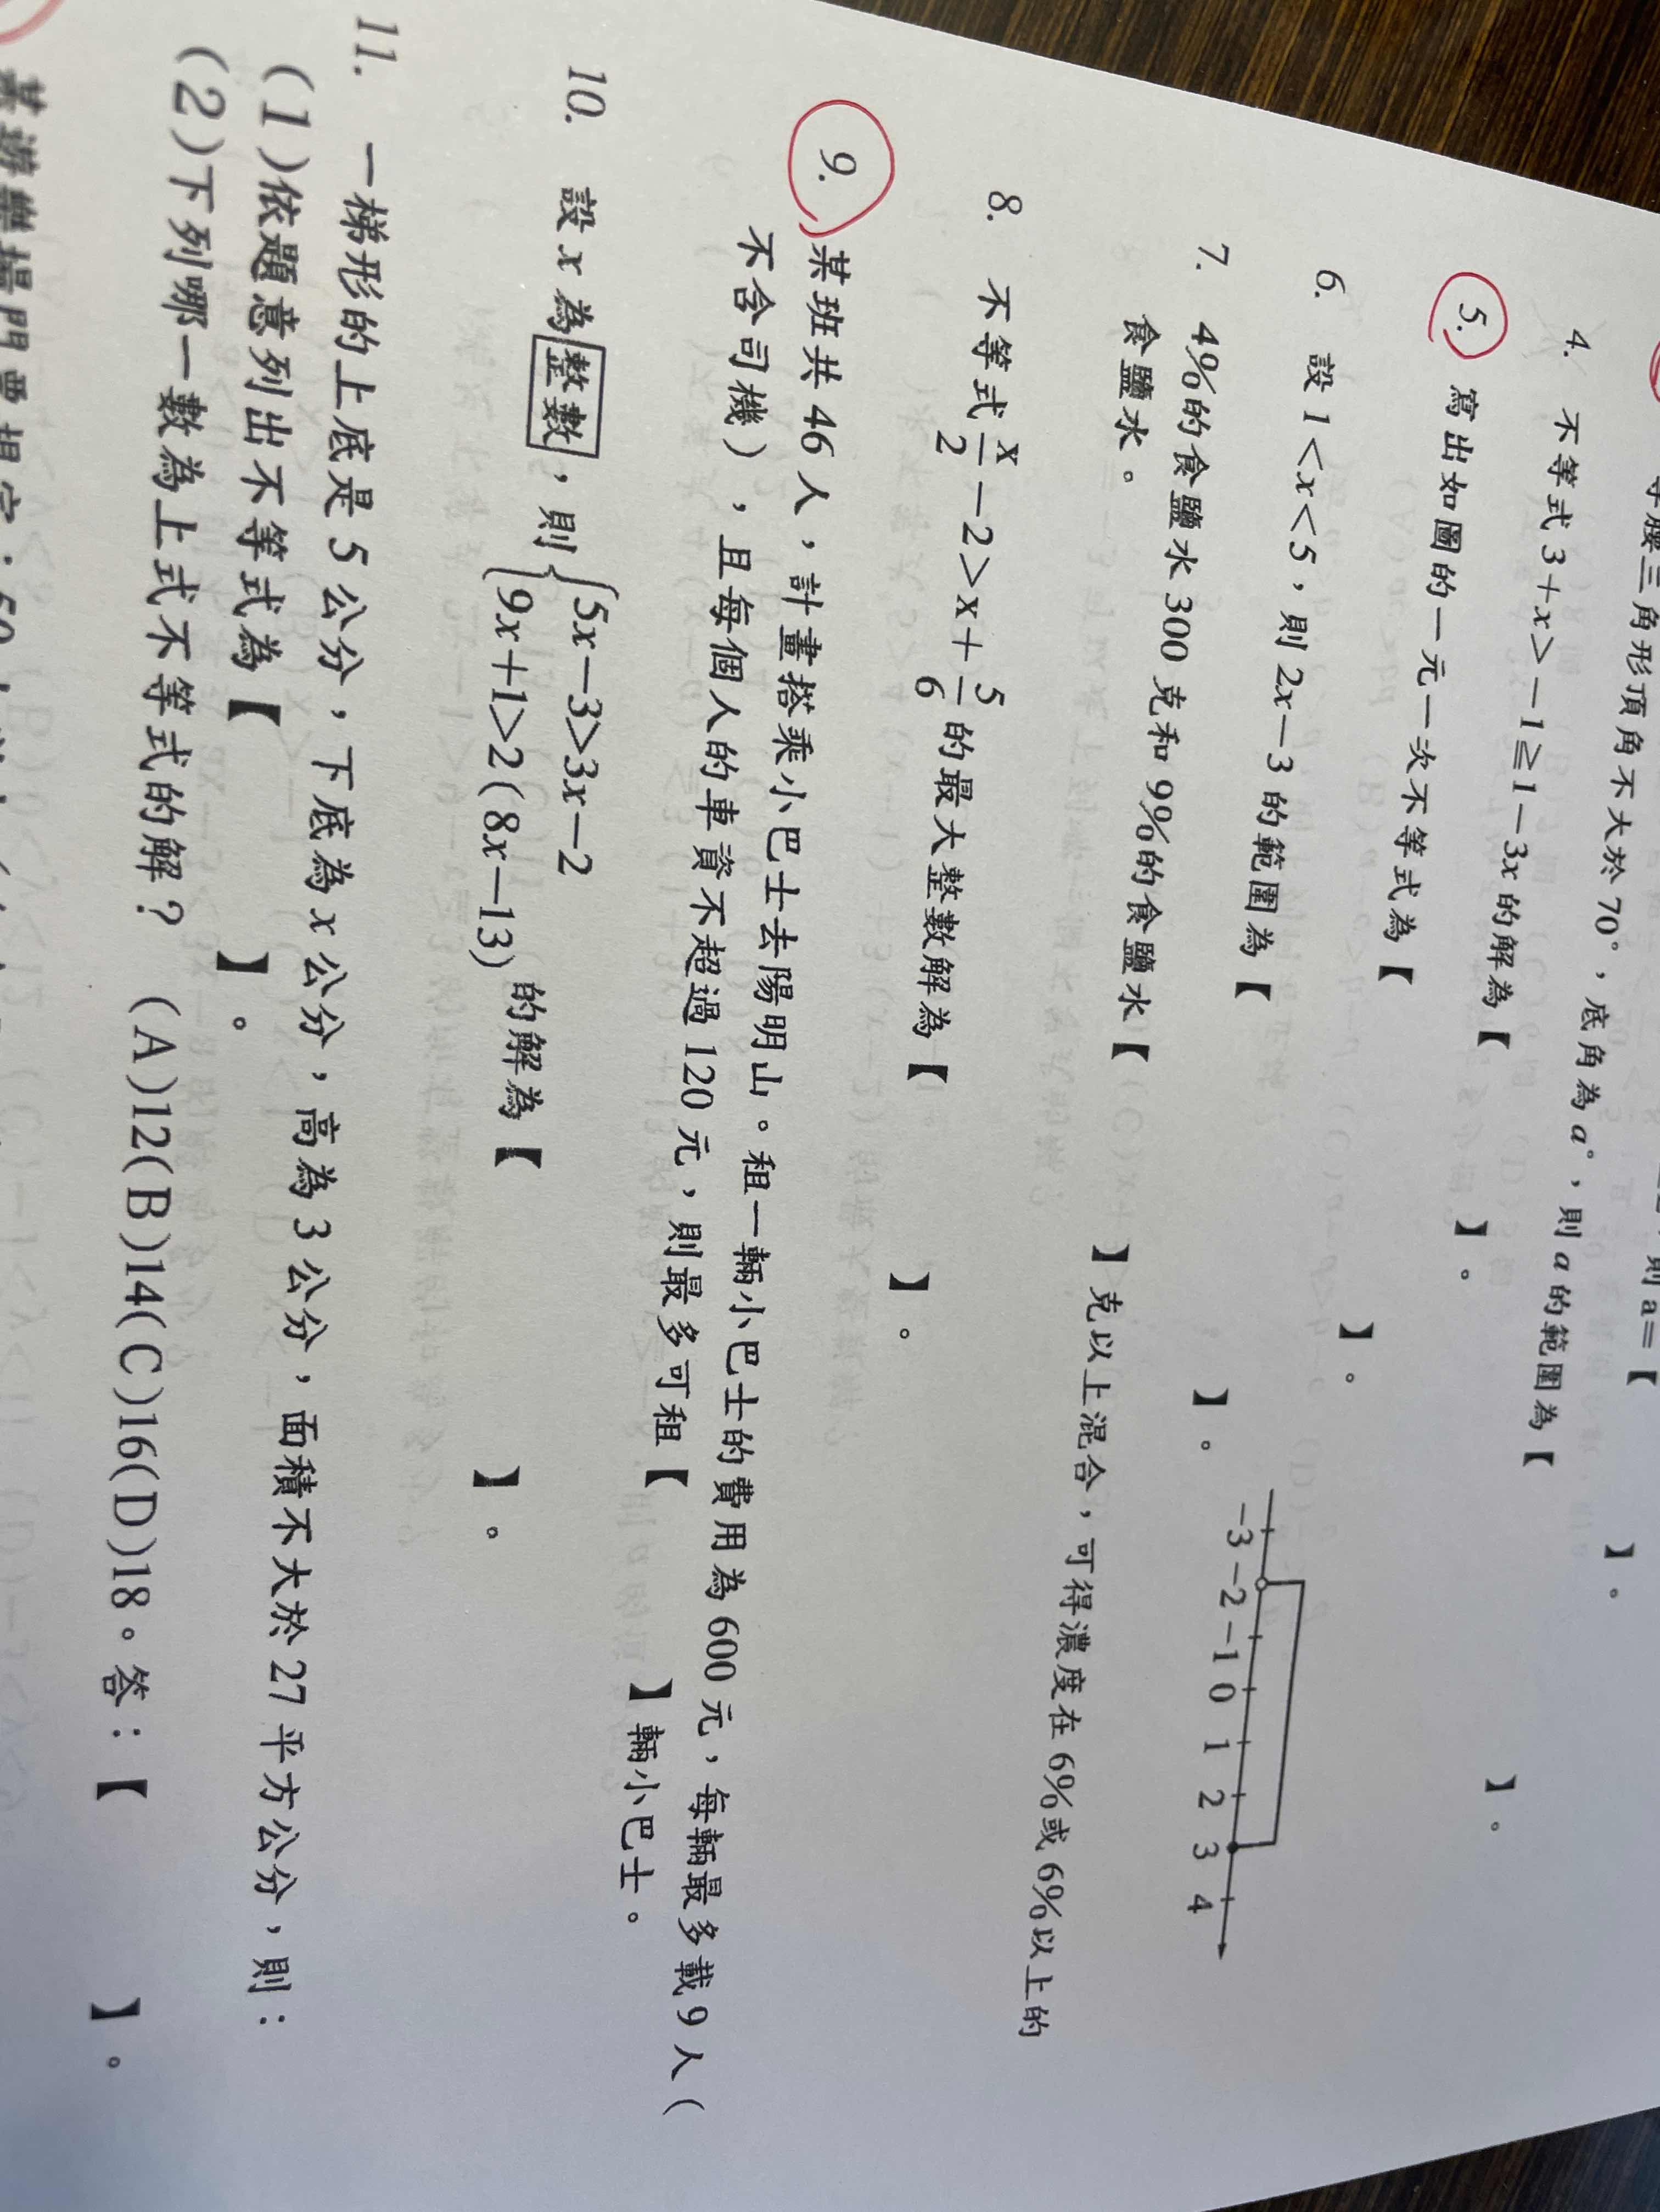 則a=【 】。
等腰三角形頂角不大於70°,底角為a°,則a的範圍為【 】。
4. 不等式3+x>-1≧1-3x的解為【 】。
5. 寫出如圖的一元一次不等式為【 】。
-3 -2 -1 0 1 2 3 4
6. 設1<x<5,則2x-3的範圍為【 】。
7. 4%的食鹽水300克和9%的食鹽水【 】克以上混合,可得濃度在6%或6%以上的
食鹽水。
8. 不等式x/2-2>x+5/6的最大整數解為【 】。
9. 某班共46人,計畫搭乘小巴士去陽明山。租一輛小巴士的費用為600元,每輛最多載9人(
不含司機),且每個人的車資不超過120元,則最多可租【 】輛小巴士。
10. 設x為整數,則{5x-3>3x-2
9x+1>2(8x-13)的解為【 】。
11. 一梯形的上底是5公分,下底為x公分,高為3公分,面積不大於27平方公分,則:
(1)依題意列出不等式為【 】。
(2)下列哪一數為上式不等式的解? (A)12(B)14(C)16(D)18。答:【 】。
某遊樂場門票規定:50